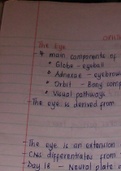 The Eye
* main components of
* Globe - eyeball
* Adnexae - eyebrow
* Orbit - Bony comp
* Visual pathways
- The eye is derived from
- The eye is an extension
CNS differentiates from
Day 18 - Neural plate